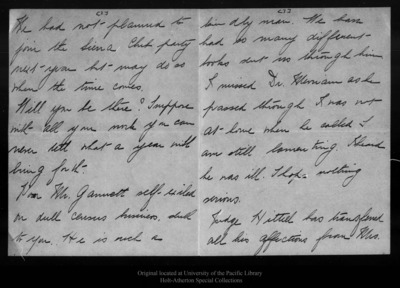 We had not planned to
join the Sierra Club party
next year but may do so
when the time comes.
Will you be there? I suppose
with all your work you can
never tell what a year will
bring forth.
Poor Mr. Gannett self-exiled
on dull census business, dull
to you. He is such a
man. We have
had so many different
books sent us through him
I missed Dr. Merriam as he
passed through. I was not
at home when he called. I
am still lamenting. I heard
he was ill. I hope nothing
serious.
Judge Hittell has transferred
all his affections from Mrs.
Original located at University of the Pacific Library
Holt-Atherton Special Collections